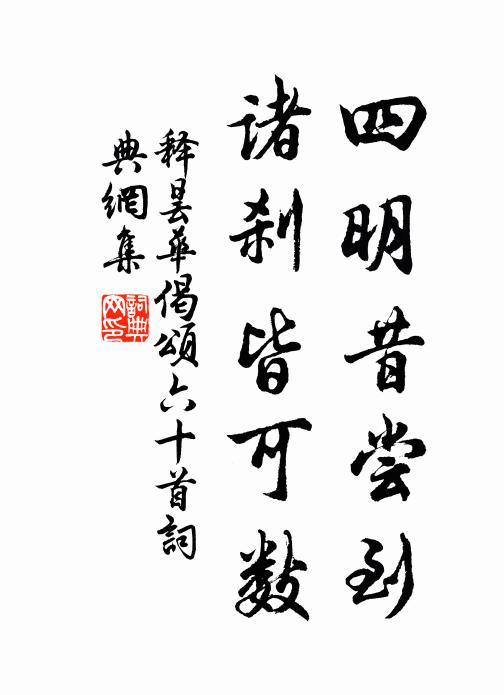 四明昔尝到
诸刹皆可数
释昙华偈颂六十首詞
典網集
詞典
网印